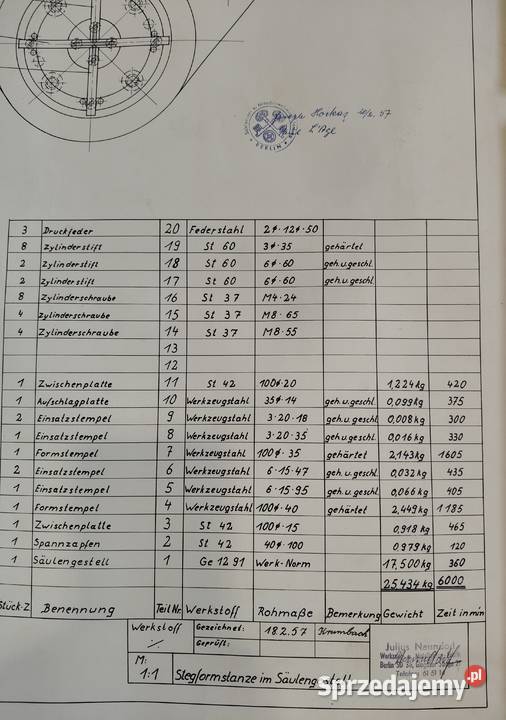 BERLIN
3 Druckfeder 20 Federstahl 2∮·12∮·50
8 Zylinderstift 19 St 60 3∮·35 gehärtet
2 Zylinderstift 18 St 60 6∮·60 geh.u.geschl.
2 Zylinderstift 17 St 60 6∮·60 geh.u.geschl.
8 Zylinderschraube 16 St 37 M4·24
4 Zylinderschraube 15 St 37 M8·65
4 Zylinderschraube 14 St 37 M8·55
13
12
1 Zwischenplatte 11 St 42 100∮·20 1,224 kg 420
1 Aufschlagplatte 10 Werkzeugstahl 35∮·14 geh.u.geschl. 0,099 kg 375
2 Einsatzstempel 9 Werkzeugstahl 3·20·18 geh.u.geschl. 0,008 kg 300
1 Einsatzstempel 8 Werkzeugstahl 3·20·35 geh.u.geschl. 0,016 kg 330
1 Formstempel 7 Werkzeugstahl 100∮·35 gehärtet 2,143 kg 1605
2 Einsatzstempel 6 Werkzeugstahl 6·15·47 geh.u.geschl. 0,032 kg 435
1 Einsatzstempel 5 Werkzeugstahl 6·15·95 geh.u.geschl. 0,066 kg 405
1 Formstempel 4 Werkzeugstahl 100∮·40 gehärtet 2,449 kg 1185
1 Zwischenplatte 3 St 42 100∮·15 0,918 kg 465
1 Spannzapfen 2 St 42 40∮·100 0,979 kg 120
1 Säulengestell 1 Ge 12 91 Werk-Norm 17,500 kg 360
25,434 kg 6000
Stück-Z Benennung Teil Nr. Werkstoff Rohmaße Bemerkung Gewicht Zeit in min
Werkstoff Gezeichnet: 18.2.57 Krumbach
Geprüft:
Julius Neundorf
Berlin
M:
1:1 Stegformstanze im Säulengestell
Sprzedajemy.pl